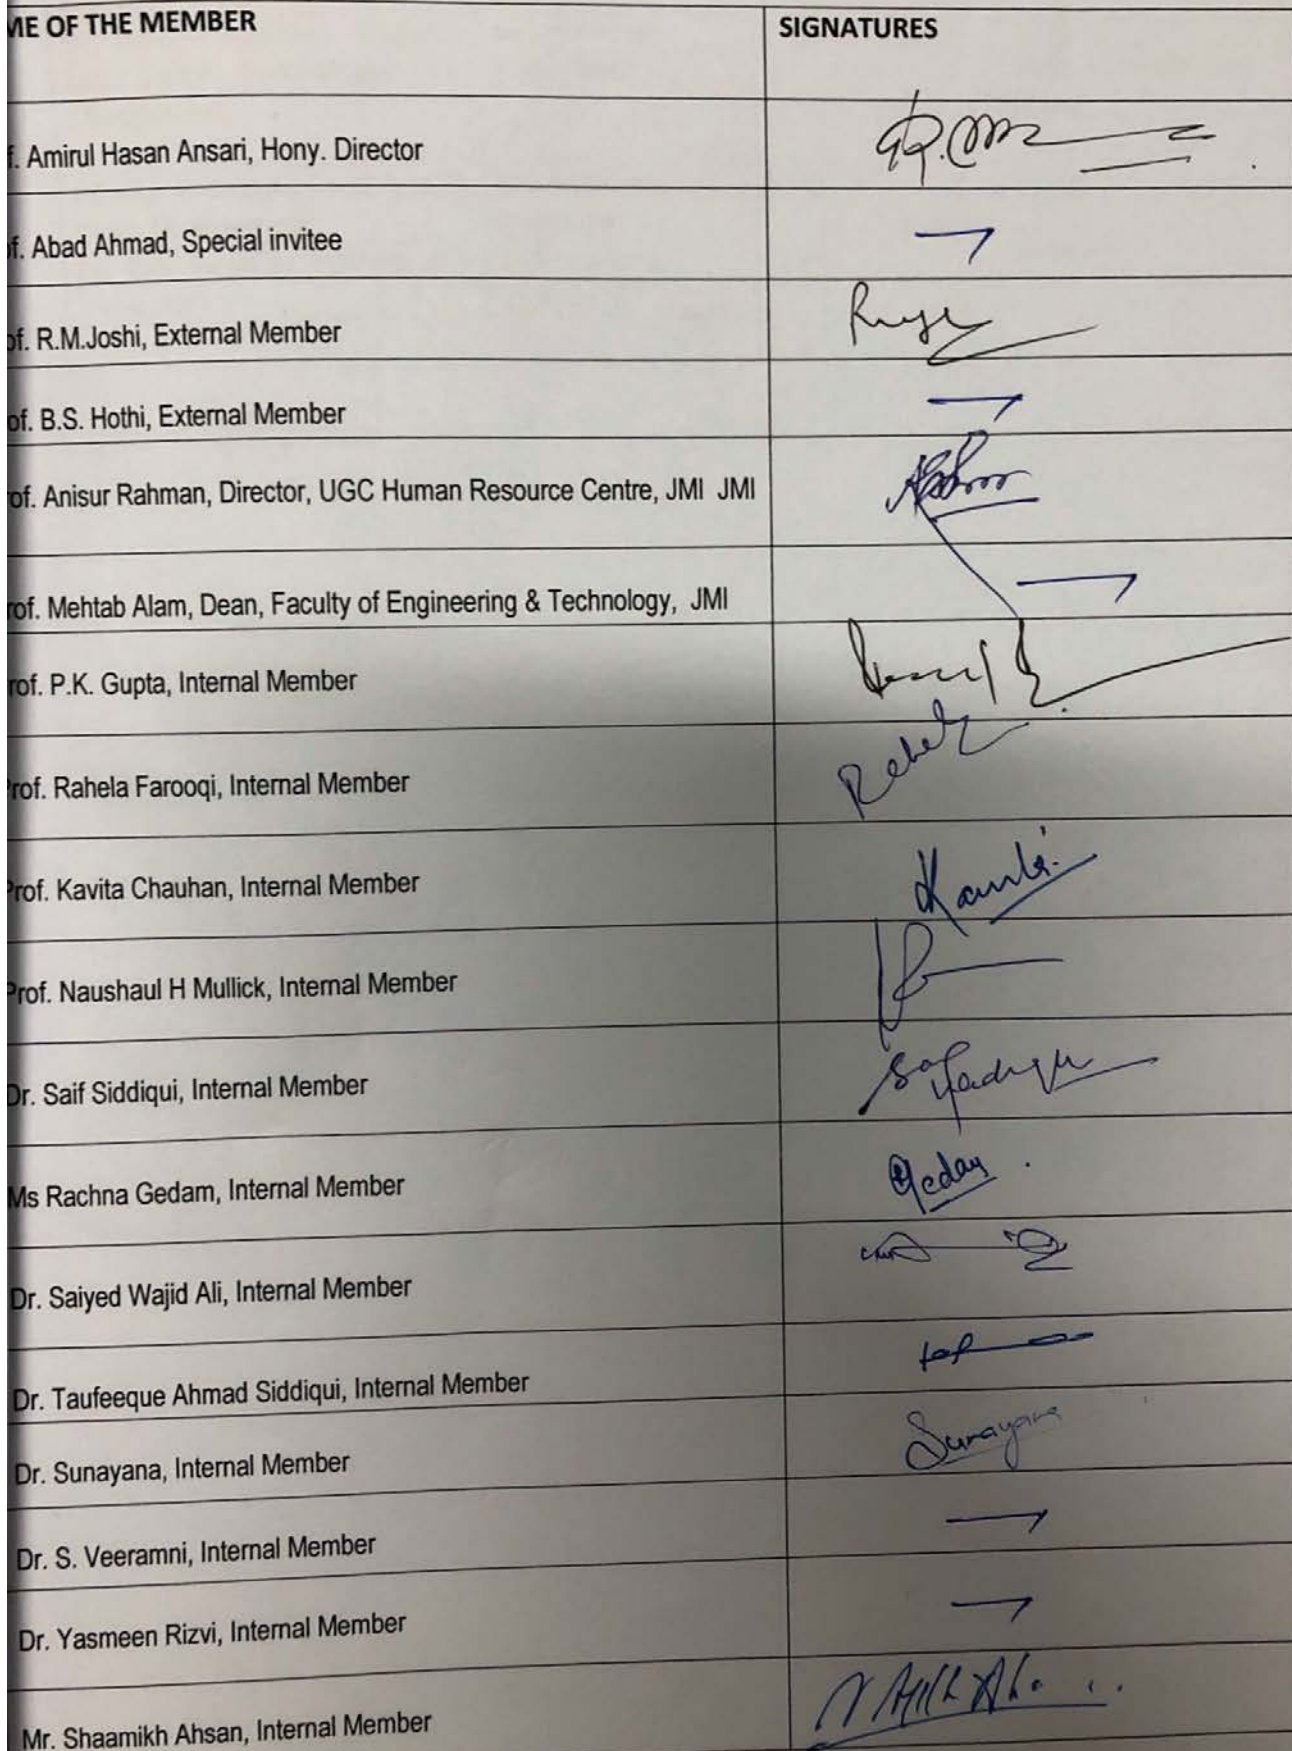 ME OF THE MEMBER SIGNATURES
f. Amirul Hasan Ansari, Hony. Director
of. Abad Ahmad, Special invitee
of. R.M.Joshi, External Member
of. B.S. Hothi, External Member
of. Anisur Rahman, Director, UGC Human Resource Centre, JMI JMI
rof. Mehtab Alam, Dean, Faculty of Engineering & Technology, JMI
rof. P.K. Gupta, Internal Member
Prof. Rahela Farooqi, Internal Member
Prof. Kavita Chauhan, Internal Member
Prof. Naushaul H Mullick, Internal Member
Dr. Saif Siddiqui, Internal Member
Ms Rachna Gedam, Internal Member Gedam
Dr. Saiyed Wajid Ali, Internal Member
Dr. Taufeeque Ahmad Siddiqui, Internal Member
Dr. Sunayana, Internal Member Sunayana
Dr. S. Veeramni, Internal Member
Dr. Yasmeen Rizvi, Internal Member
Mr. Shaamikh Ahsan, Internal Member